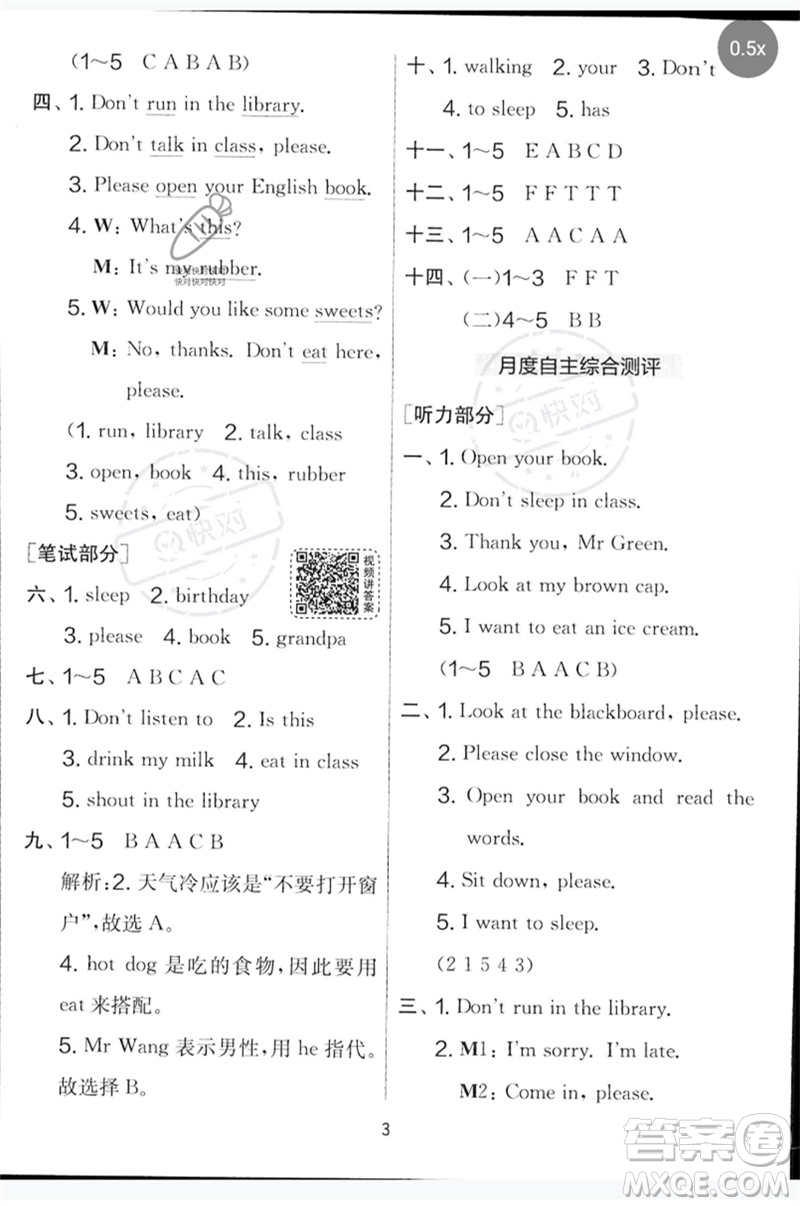 (1～5 C A B A B)
四、1. Don't run in the library.
2. Don't talk in class, please.
3. Please open your English book.
4. W: What's this?
M: It's my rubber.
快对快对快对
快对快对快对
5. W: Would you like some sweets?
M: No, thanks. Don't eat here,
please.
(1. run, library 2. talk, class
3. open, book 4. this, rubber
5. sweets, eat)
[笔试部分]
视频讲答案
六、1. sleep 2. birthday
3. please 4. book 5. grandpa
七、1～5 A B C A C
八、1. Don't listen to 2. Is this
3. drink my milk 4. eat in class
5. shout in the library
九、1～5 B A A C B
解析:2. 天气冷应该是“不要打开窗
户”,故选 A。
4. hot dog 是吃的食物,因此要用
eat 来搭配。
5. Mr Wang 表示男性,用 he 指代。
故选择 B。
0.5x
十、1. walking 2. your 3. Don't
4. to sleep 5. has
十一、1～5 E A B C D
十二、1～5 F F T T T
十三、1～5 A A C A A
十四、(一)1～3 F F T
(二)4～5 B B
月度自主综合测评
[听力部分]
快对
一、1. Open your book.
2. Don't sleep in class.
3. Thank you, Mr Green.
4. Look at my brown cap.
5. I want to eat an ice cream.
(1～5 B A A C B)
二、1. Look at the blackboard, please.
2. Please close the window.
3. Open your book and read the
words.
4. Sit down, please.
5. I want to sleep.
(2 1 5 4 3)
三、1. Don't run in the library.
2. M1: I'm sorry. I'm late.
M2: Come in, please.
快对
3
答案圈
MXQE.COM